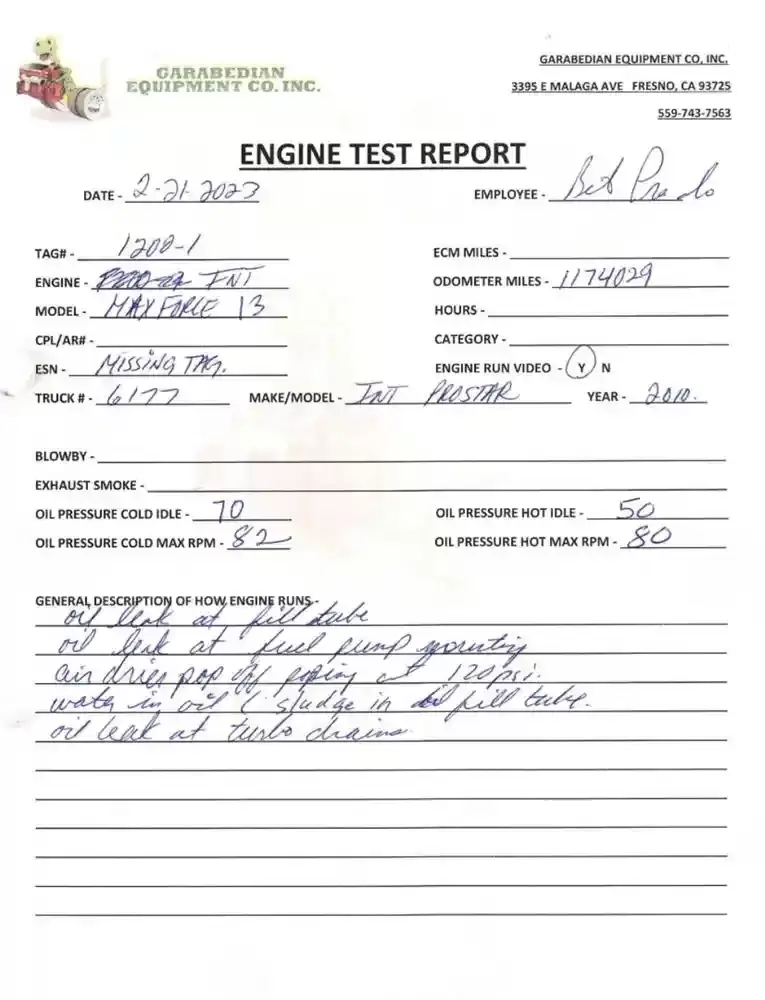 GARABEDIAN
EQUIPMENT CO. INC.
GARABEDIAN EQUIPMENT CO, INC.
3395 E MALAGA AVE FRESNO, CA 93725
559-743-7563
ENGINE TEST REPORT
DATE - 2-21-2023
EMPLOYEE -
TAG# - 1200-1
ECM MILES -
ENGINE - INT
ODOMETER MILES - 1174029
MODEL - MAXFORCE 13
HOURS -
CPL/AR# -
CATEGORY -
ESN - MISSING TAG.
ENGINE RUN VIDEO - Y N
TRUCK # - 6177 MAKE/MODEL - INT PROSTAR YEAR - 2010.
BLOWBY -
EXHAUST SMOKE -
OIL PRESSURE COLD IDLE - 70
OIL PRESSURE HOT IDLE - 50
OIL PRESSURE COLD MAX RPM - 82
OIL PRESSURE HOT MAX RPM - 80
GENERAL DESCRIPTION OF HOW ENGINE RUNS -
oil leak at fill tube
oil leak at fuel pump mounting
air drier pop off poping at 120 psi.
water in oil ( sludge in fill tube.
oil leak at turbo drains